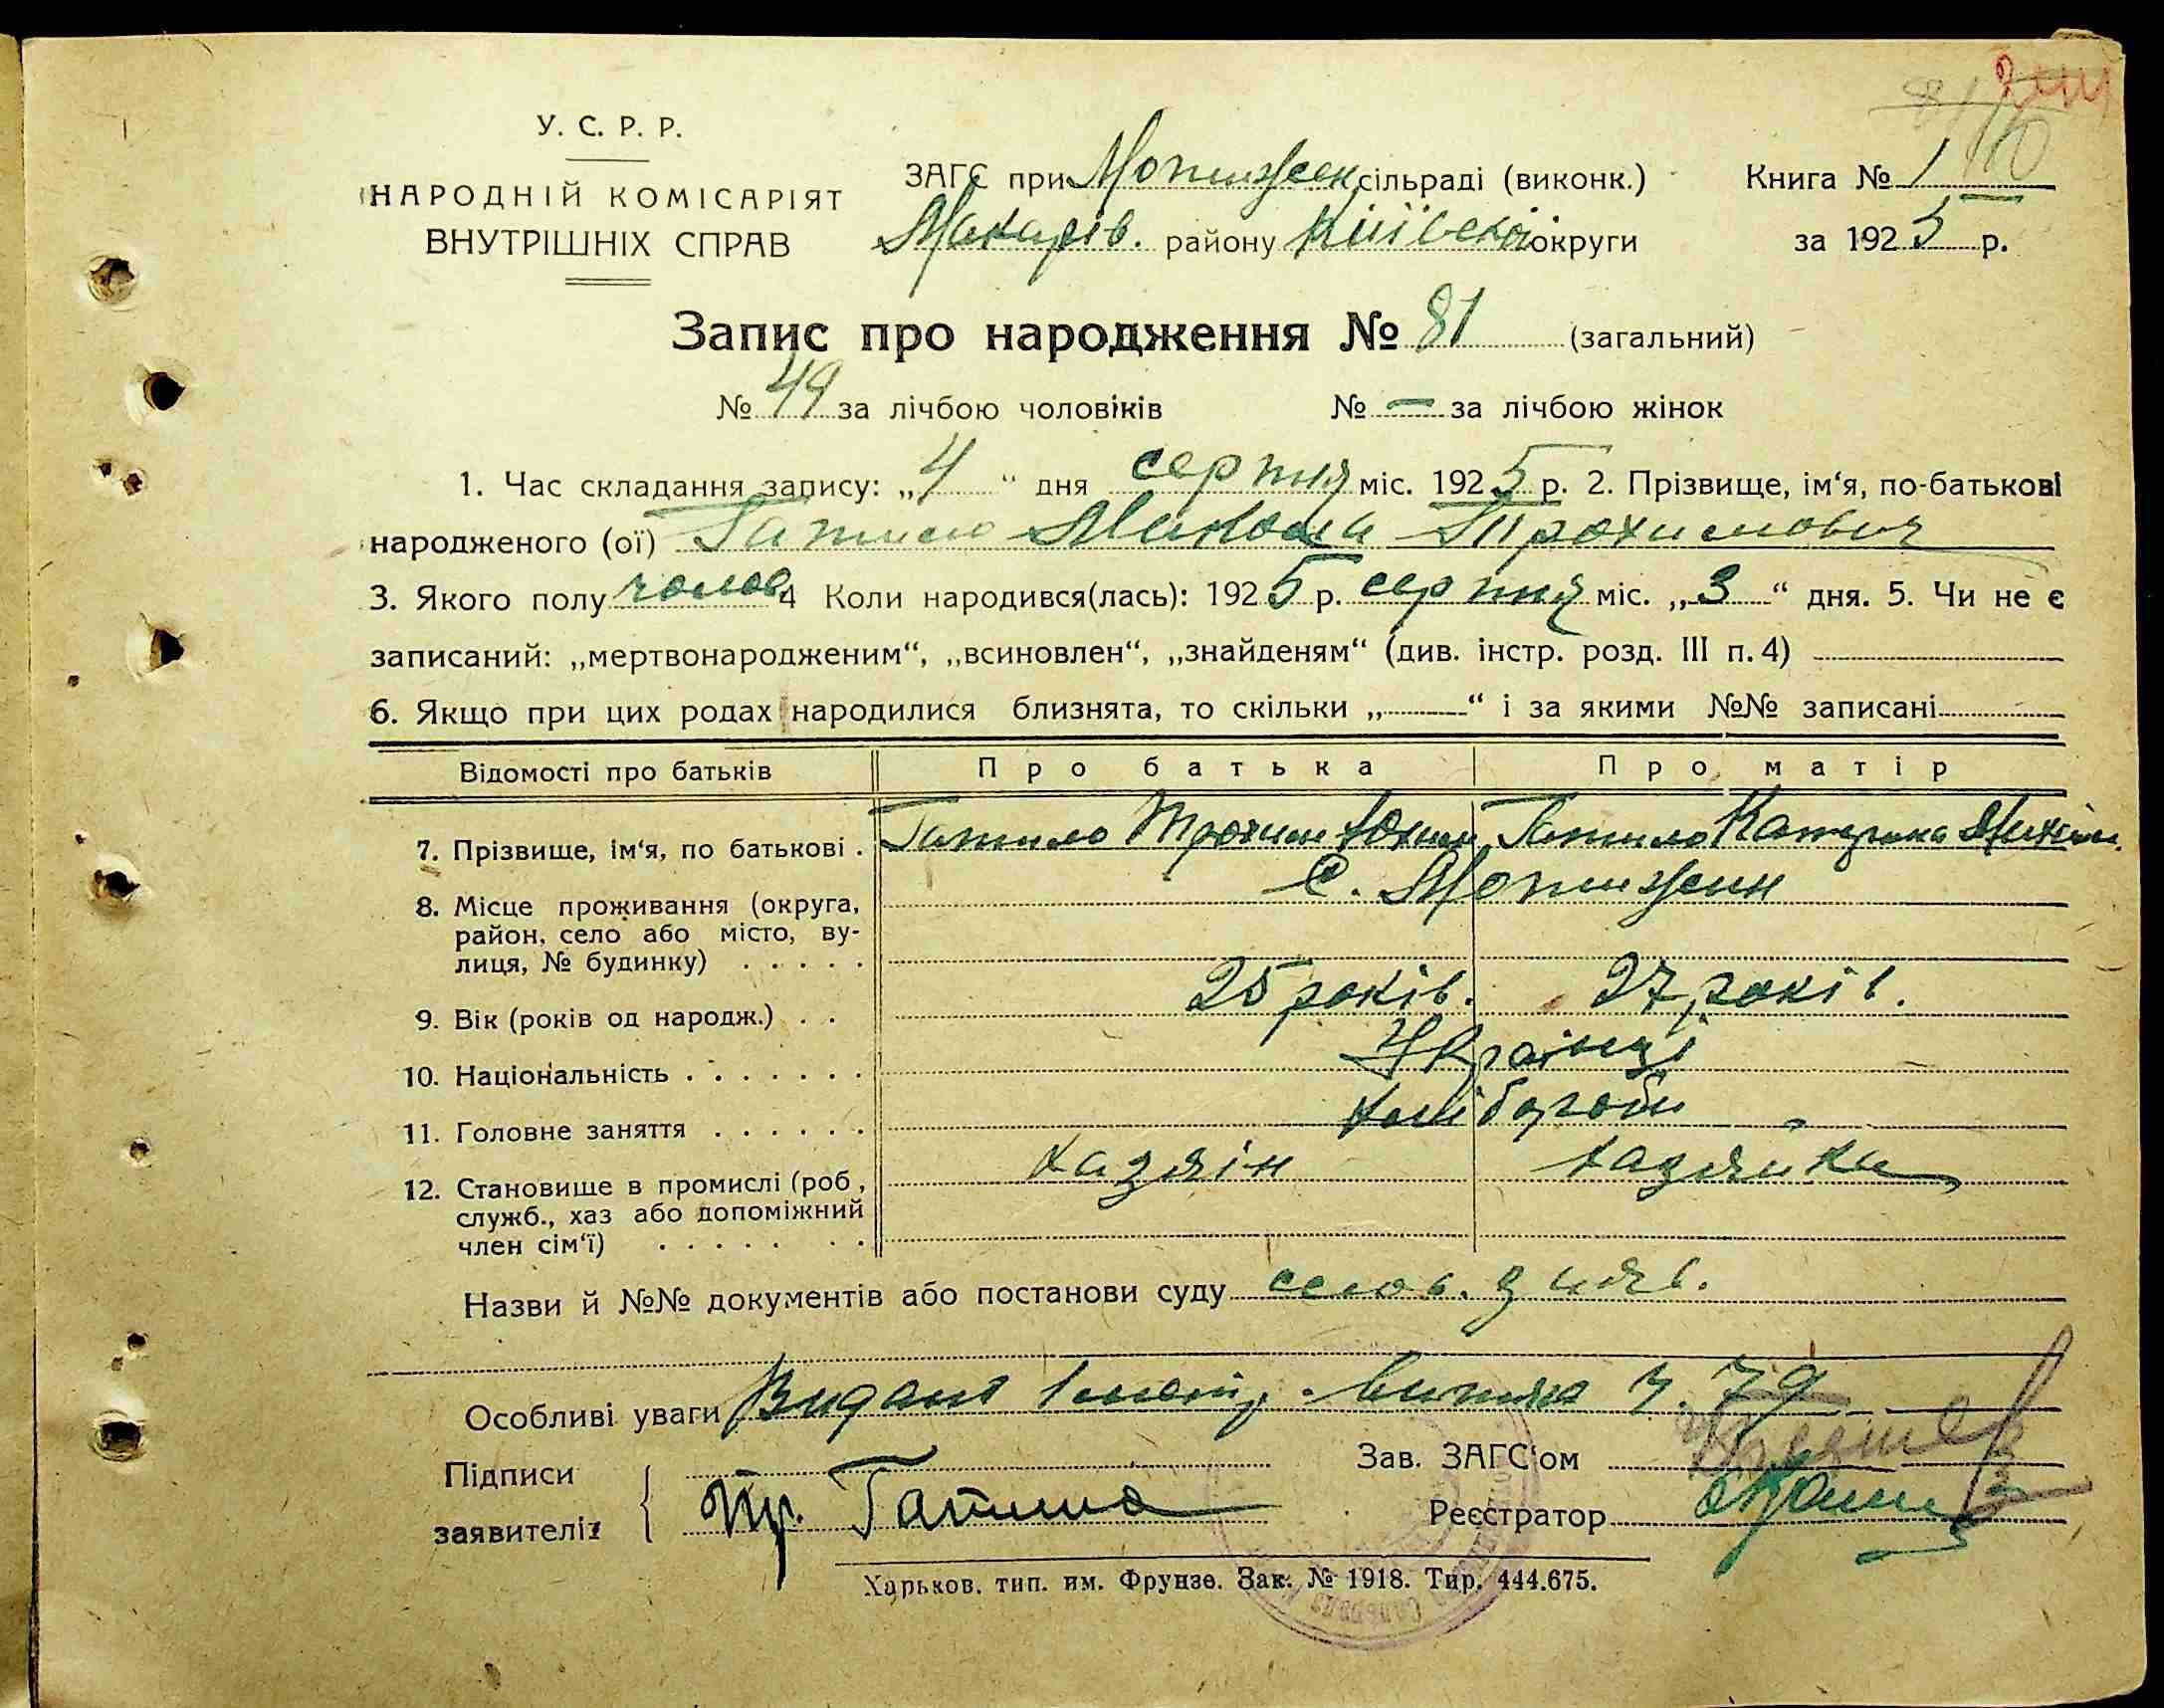 У. С. Р. Р.
НАРОДНІЙ КОМІСАРІЯТ
ВНУТРІШНІХ СПРАВ
ЗАГС при Мотижен сільраді (виконк.)
Макарів. району Київської округи
Книга № 1
за 1925 р.
Запис про народження № 81 (загальний)
№ 49 за лічбою чоловіків № — за лічбою жінок
1. Час складання запису: „4“ дня серпня міс. 1925 р. 2. Прізвище, ім‘я, по-батькові
народженого (ої) Гатило Микола Трохимович
3. Якого полу чолов 4 Коли народився(лась): 1925 р. серпня міс. „3“ дня. 5. Чи не є
записаний: „мертвонародженим“, „всиновлен“, „знайденям“ (див. інстр. розд. III п. 4)
6. Якщо при цих родах народилися близнята, то скільки „—“ і за якими №№ записані
Відомості про батьків Про батька Про матір
7. Прізвище, ім‘я, по батькові . Гатило Трохим Юхим Гатило Катерина
8. Місце проживання (округа, С. Мотижин
район, село або місто, ву-
лиця, № будинку) . . . . .
9. Вік (років од народж.) . . 25 років. 27 років.
10. Національність . . . . . . . Українці
11. Головне заняття . . . . . . хлібороби
12. Становище в промислі (роб, хазяїн хазяйка
служб., хаз або допоміжний
член сім‘ї) . . . . . . .
Назви й №№ документів або постанови суду слов. заяв.
Особливі уваги Видано витяг 79
Підписи
заявителів
Тр. Гатило
Зав. ЗАГС‘ом
Реєстратор
Харьков, тип. им. Фрунзе. Зак. № 1918. Тир. 444.675.